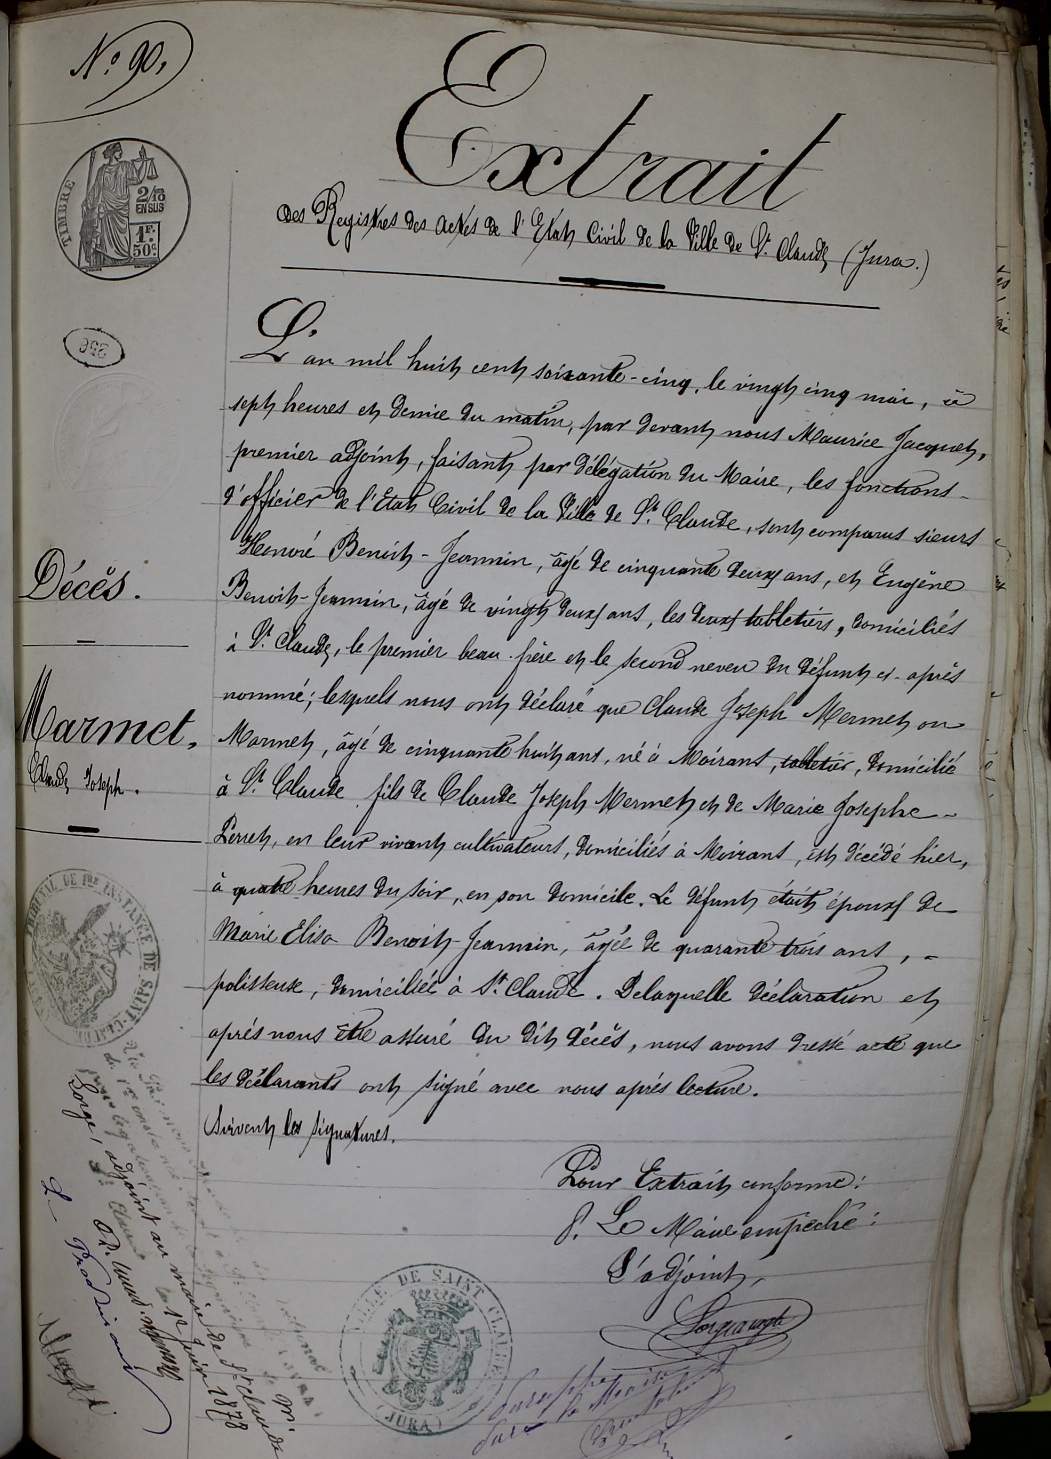 N.o 90,
TIMBRE
2/10
EN SUS
1F.
50c.
Extrait
des Registres des actes de l'Etat Civil de la Ville de St. Claude (Jura.)
L'an mil huit cent soixante-cinq, le vingt cinq mai, à
sept heures et demie du matin, par devant nous Maurice Jacquet,
premier adjoint, faisant par délégation du Maire, les fonctions
d'officier de l'Etat Civil de la Ville de St. Claude, sont comparus sieurs
Honoré Benoit-Jeannin, âgé de cinquante deux ans, et Eugène
Décès.
Benoit-Jeannin, âgé de vingt deux ans, les deux tabletiers, domiciliés
à St. Claude, le premier beau-frère et le second neveu du défunt ci-après
nommé; lesquels nous ont déclaré que Claude Joseph Mermet ou
Marmet,
Claude Joseph.
Marmet, âgé de cinquante huit ans, né à Moirans, tabletier, domicilié
à St. Claude fils de Claude Joseph Mermet et de Marie Josephe
Perret, en leur vivant cultivateurs, domiciliés à Moirans, est décédé hier,
à quatre heures du soir, en son domicile. Le défunt était époux de
Marie Elisa Benoit-Jeannin, âgée de quarante trois ans,
polisseuse, domiciliée à St. Claude. De laquelle déclaration et
après nous être assuré du dit décès, nous avons dressé acte que
les déclarants ont signé avec nous après lecture.
Suivent les signatures.
TRIBUNAL DE 1RE INSTANCE DE SAINT-CLAUDE
Pour Extrait conforme:
P. Le Maire empêché:
L'adjoint,
VILLE DE SAINT CLAUDE
(JURA)
Vu par nous
adjoint au maire de St Claude
juin 1878